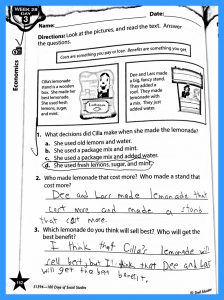 WEEK 28
DAY
3
Name:
Date:
Directions: Look at the pictures, and read the text. Answer
the questions.
Costs are something you pay or lose. Benefits are something you get.
Economics
Cilla's lemonade
stand is a wooden
box. She made her
best lemonade.
She used fresh
lemons, sugar,
and mint.
Dee and Lars made
a big, fancy stand.
They added a
roof. They made
lemonade with
a mix. They just
added water.
1. What decisions did Cilla make when she made the lemonade?
a. She used old lemons and water.
b. She used a package mint.
c. She used a package mix and added water.
d. She used fresh lemons, sugar, and mint.
2. Who made lemonade that cost more? Who made a stand that
cost more?
Dee and Lars made lemonade that
cost more and made a stand
that cost more.
3. Which lemonade do you think will sell best? Who will get the
best benefit?
I think that Cilla? lemonade will
sell best, but I think that Dee and Lars
will get the best benefit.
51394—180 Days of Social Studies
© Shell Education